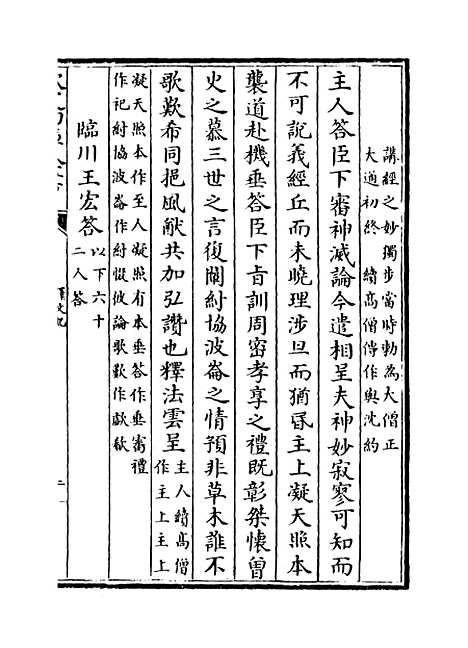 講經之妙獨步當時勅為大僧正
大通初終　續高僧傳作與沈約
主人答臣下審神滅論今遣相呈夫神妙寂寥可知而
不可說義經丘而未曉理涉旦而猶昏主上凝天照本
襲道赴機垂答臣下旨訓周密孝享之禮既彰桀懷曾
史之慕三世之言復闡紂協波崙之情預非草木誰不
歌歎希同挹風猷共加弘讚也釋法雲呈
主人續高僧
作主上主上
凝天照本作至人凝照有本垂答作垂審禮
作祀紂協波崙作紂惙攸論歌歎作歔欷
臨川王宏答
以下六十
二人答